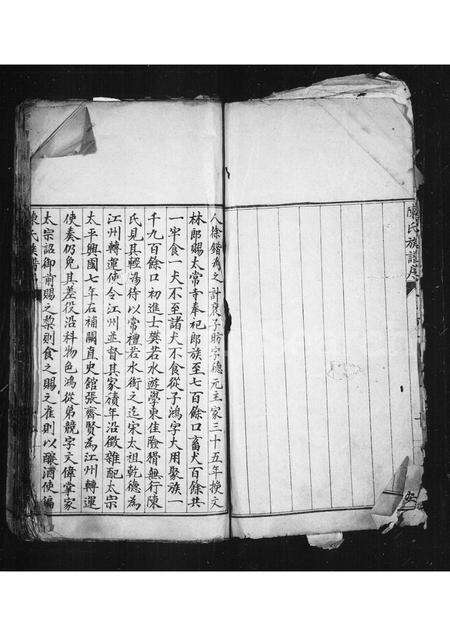 陳氏族譜序
人徐鍇為之計襃子昉字德元主家三十五年授文
林郎賜太常寺奉祀郎族至七百餘口畜犬百餘共
一牢食一犬不至諸犬不食從子鴻字大用聚族一
千九百餘口初進士樊若水遊學東佳險猾無行陳
氏見其輕蕩待以常禮若水銜之迄宋太祖乾德為
江州轉運使令江州並督其家積年沿徵雜配太宗
太平興國七年右補闕直史館張齊賢為江州轉運
使奏仍免其差役沿科物色鴻從弟競字文偉掌家
太宗詔御前賜之棃則食之賜之雀則以釀酒使徧
陳氏族譜